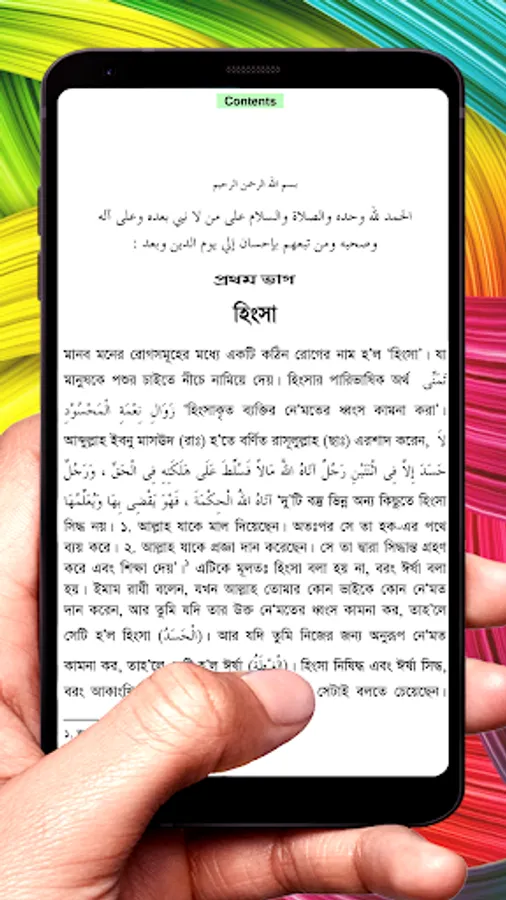 Contents
بسم الله الرحمن الرحيم
الحمد لله وحده والصلاة والسلام على من لا نبي بعده وعلى آله
وصحبه ومن تبعهم بإحسان إلي يوم الدين وبعد :
প্রথম ভাগ
হিংসা
মানব মনের রোগসমূহের মধ্যে একটি কঠিন রোগের নাম হ'ল 'হিংসা'। যা
মানুষকে পশুর চাইতে নীচে নামিয়ে দেয়। হিংসার পারিভাষিক অর্থ تَمَنِّى
زَوَالِ نِعْمَةِ الْمَحْسُوْدِ 'হিংসাকৃত ব্যক্তির নে'মতের ধ্বংস কামনা করা'।
আব্দুল্লাহ ইবনু মাসঊদ (রাঃ) হ'তে বর্ণিত রাসূলুল্লাহ (ছাঃ) এরশাদ করেন, لاَ
حَسَدَ إِلاَّ فِى اثْنَتَيْنِ رَجُلٌ آتَاهُ اللهُ مَالاً فَسُلِّطَ عَلَى هَلَكَتِهِ فِى الْحَقِّ ، وَرَجُلٌ
آتَاهُ اللهُ الْحِكْمَةَ ، فَهْوَ يَقْضِى بِهَا وَيُعَلِّمُهَا 'দু'টি বস্তু ভিন্ন অন্য কিছুতে হিংসা
সিদ্ধ নয়। ১. আল্লাহ যাকে মাল দিয়েছেন। অতঃপর সে তা হক-এর পথে
ব্যয় করে। ২. আল্লাহ যাকে প্রজ্ঞা দান করেছেন। সে তা দ্বারা সিদ্ধান্ত গ্রহণ
করে এবং শিক্ষা দেয়'।১ এটিকে মূলতঃ হিংসা বলা হয় না, বরং ঈর্ষা বলা
হয়। ইমাম রাযী বলেন, যখন আল্লাহ তোমার কোন ভাইকে কোন নে'মত
দান করেন, আর তুমি যদি তার উক্ত নে'মতের ধ্বংস কামনা কর, তাহ'লে
সেটি হ'ল হিংসা (الْحَسَدُ)। আর যদি তুমি নিজের জন্য অনুরূপ নে'মত
কামনা কর, তাহ'লে হ'ল ঈর্ষা। হিংসা নিষিদ্ধ এবং ঈর্ষা সিদ্ধ,
বরং সেটাই বলতে চেয়েছেন।
১.